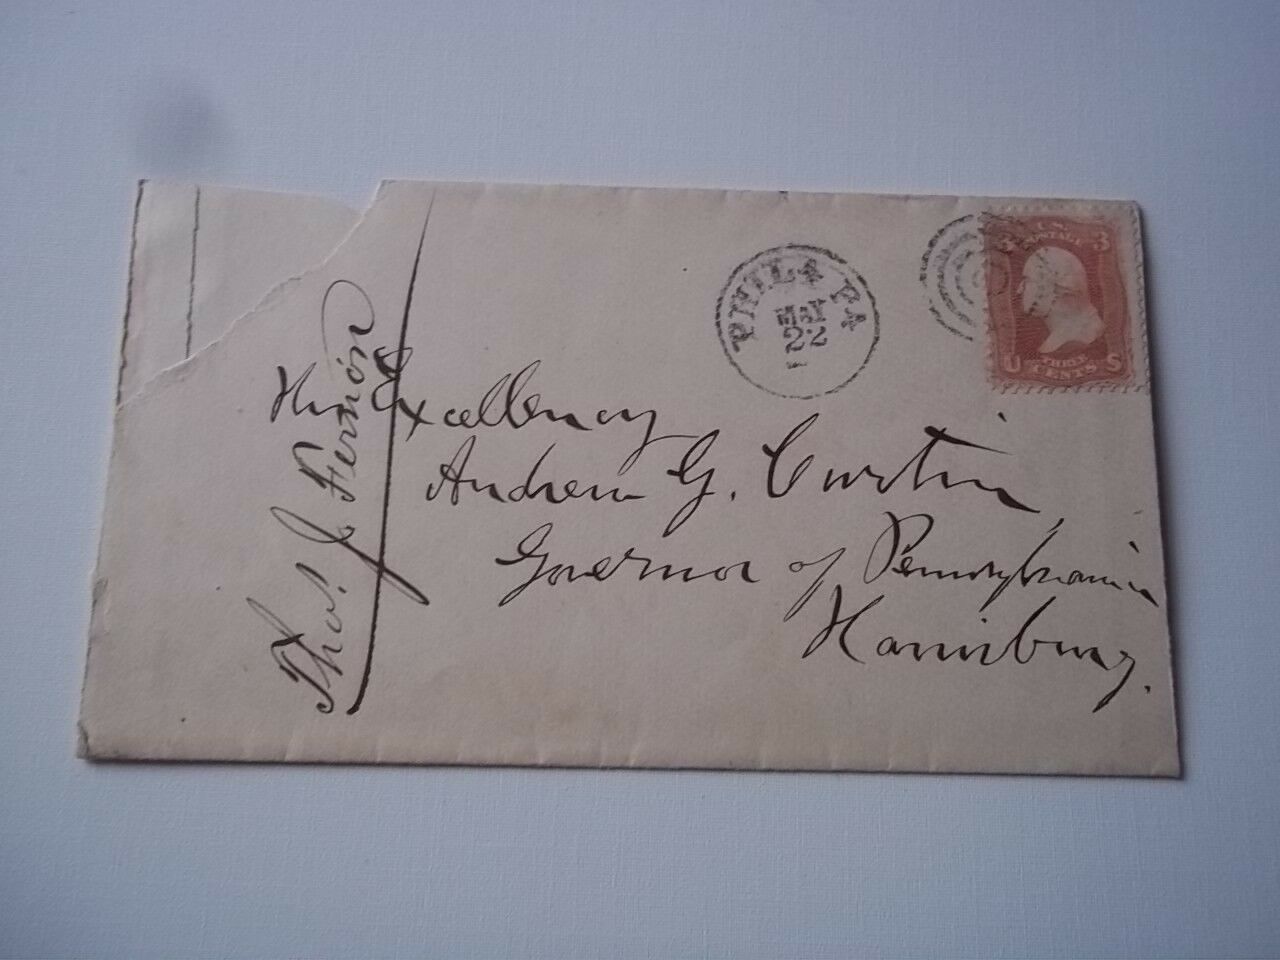 PHIL'A PA
MAY
22
3 U.S. 3
POSTAGE
U THREE S
CENTS
His Excellency
Andrew G. Curtin
Governor of Pennsylvania
Harrisburg.
Thos. J. Fernon